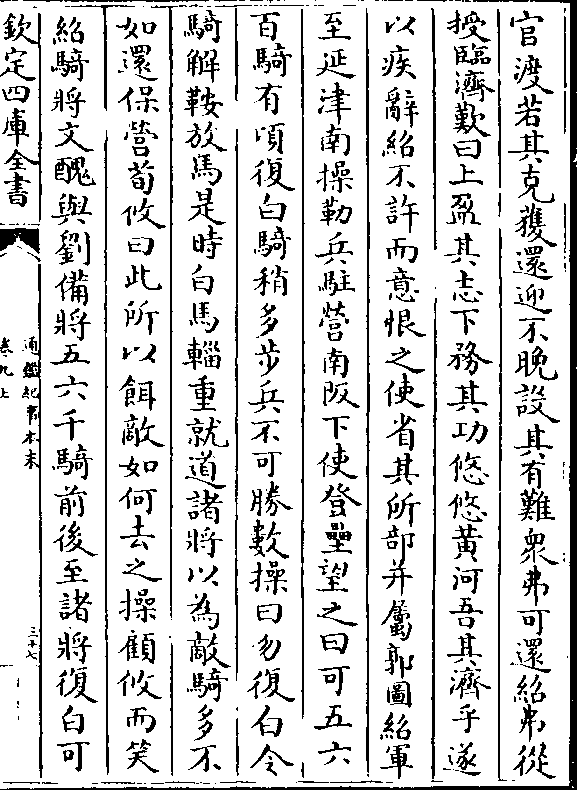 官渡若其克獲還迎不晚設其有難衆弗可還紹弗從
授臨濟歎曰上盈其志下務其功悠悠黄河吾其濟乎遂
以疾辭紹不許而意恨之使省其所部并屬郭圖紹軍
至延津南操勒兵駐營南阪下使登壘望之曰可五六
百騎有頃復白騎稍多步兵不可勝數操曰勿復白令
騎解鞍放馬是時白馬輜重就道諸將以為敵騎多不
如還保營荀攸曰此所以餌敵如何去之操顧攸而笑
紹騎將文醜與劉備將五六千騎前後至諸將復白可
欽定四庫全書
通鑑紀事本末
卷九上
三十七